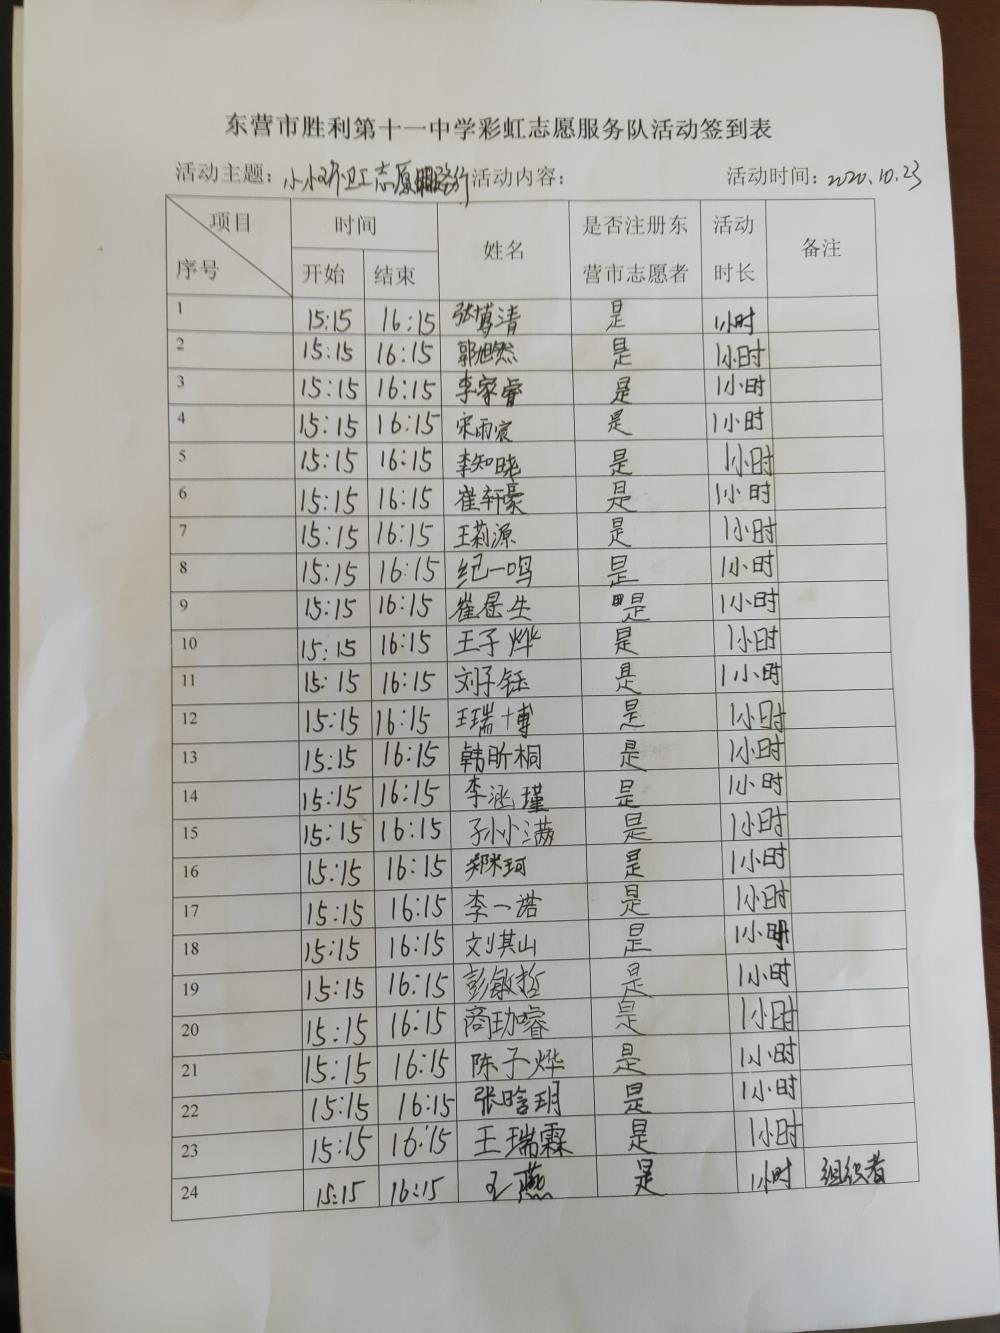 东营市胜利第十一中学彩虹志愿服务队活动签到表
活动主题：小小环卫工志愿服务行 活动内容： 活动时间：2020.10.23
项目 时间 姓名 是否注册东营市志愿者 活动时长 备注
序号 开始 结束
1 15:15 16:15 张博清 是 1小时
2 15:15 16:15 郭旭然 是 1小时
3 15:15 16:15 李家睿 是 1小时
4 15:15 16:15 宋雨宸 是 1小时
5 15:15 16:15 李知晓 是 1小时
6 15:15 16:15 崔轩豪 是 1小时
7 15:15 16:15 王莉源 是 1小时
8 15:15 16:15 纪一鸣 是 1小时
9 15:15 16:15 崔 生 是 1小时
10 15:15 16:15 王子烨 是 1小时
11 15:15 16:15 刘子钰 是 1小时
12 15:15 16:15 王瑞博 是 1小时
13 15:15 16:15 韩昕桐 是 1小时
14 15:15 16:15 李涵瑾 是 1小时
15 15:15 16:15 孙小满 是 1小时
16 15:15 16:15 郑米珂 是 1小时
17 15:15 16:15 李一诺 是 1小时
18 15:15 16:15 刘其山 是 1小时
19 15:15 16:15 彭敏哲 是 1小时
20 15:15 16:15 商 睿 是 1小时
21 15:15 16:15 陈子烨 是 1小时
22 15:15 16:15 张晗玥 是 1小时
23 15:15 16:15 王瑞霖 是 1小时
24 15:15 16:15 王燕 是 1小时 组织者